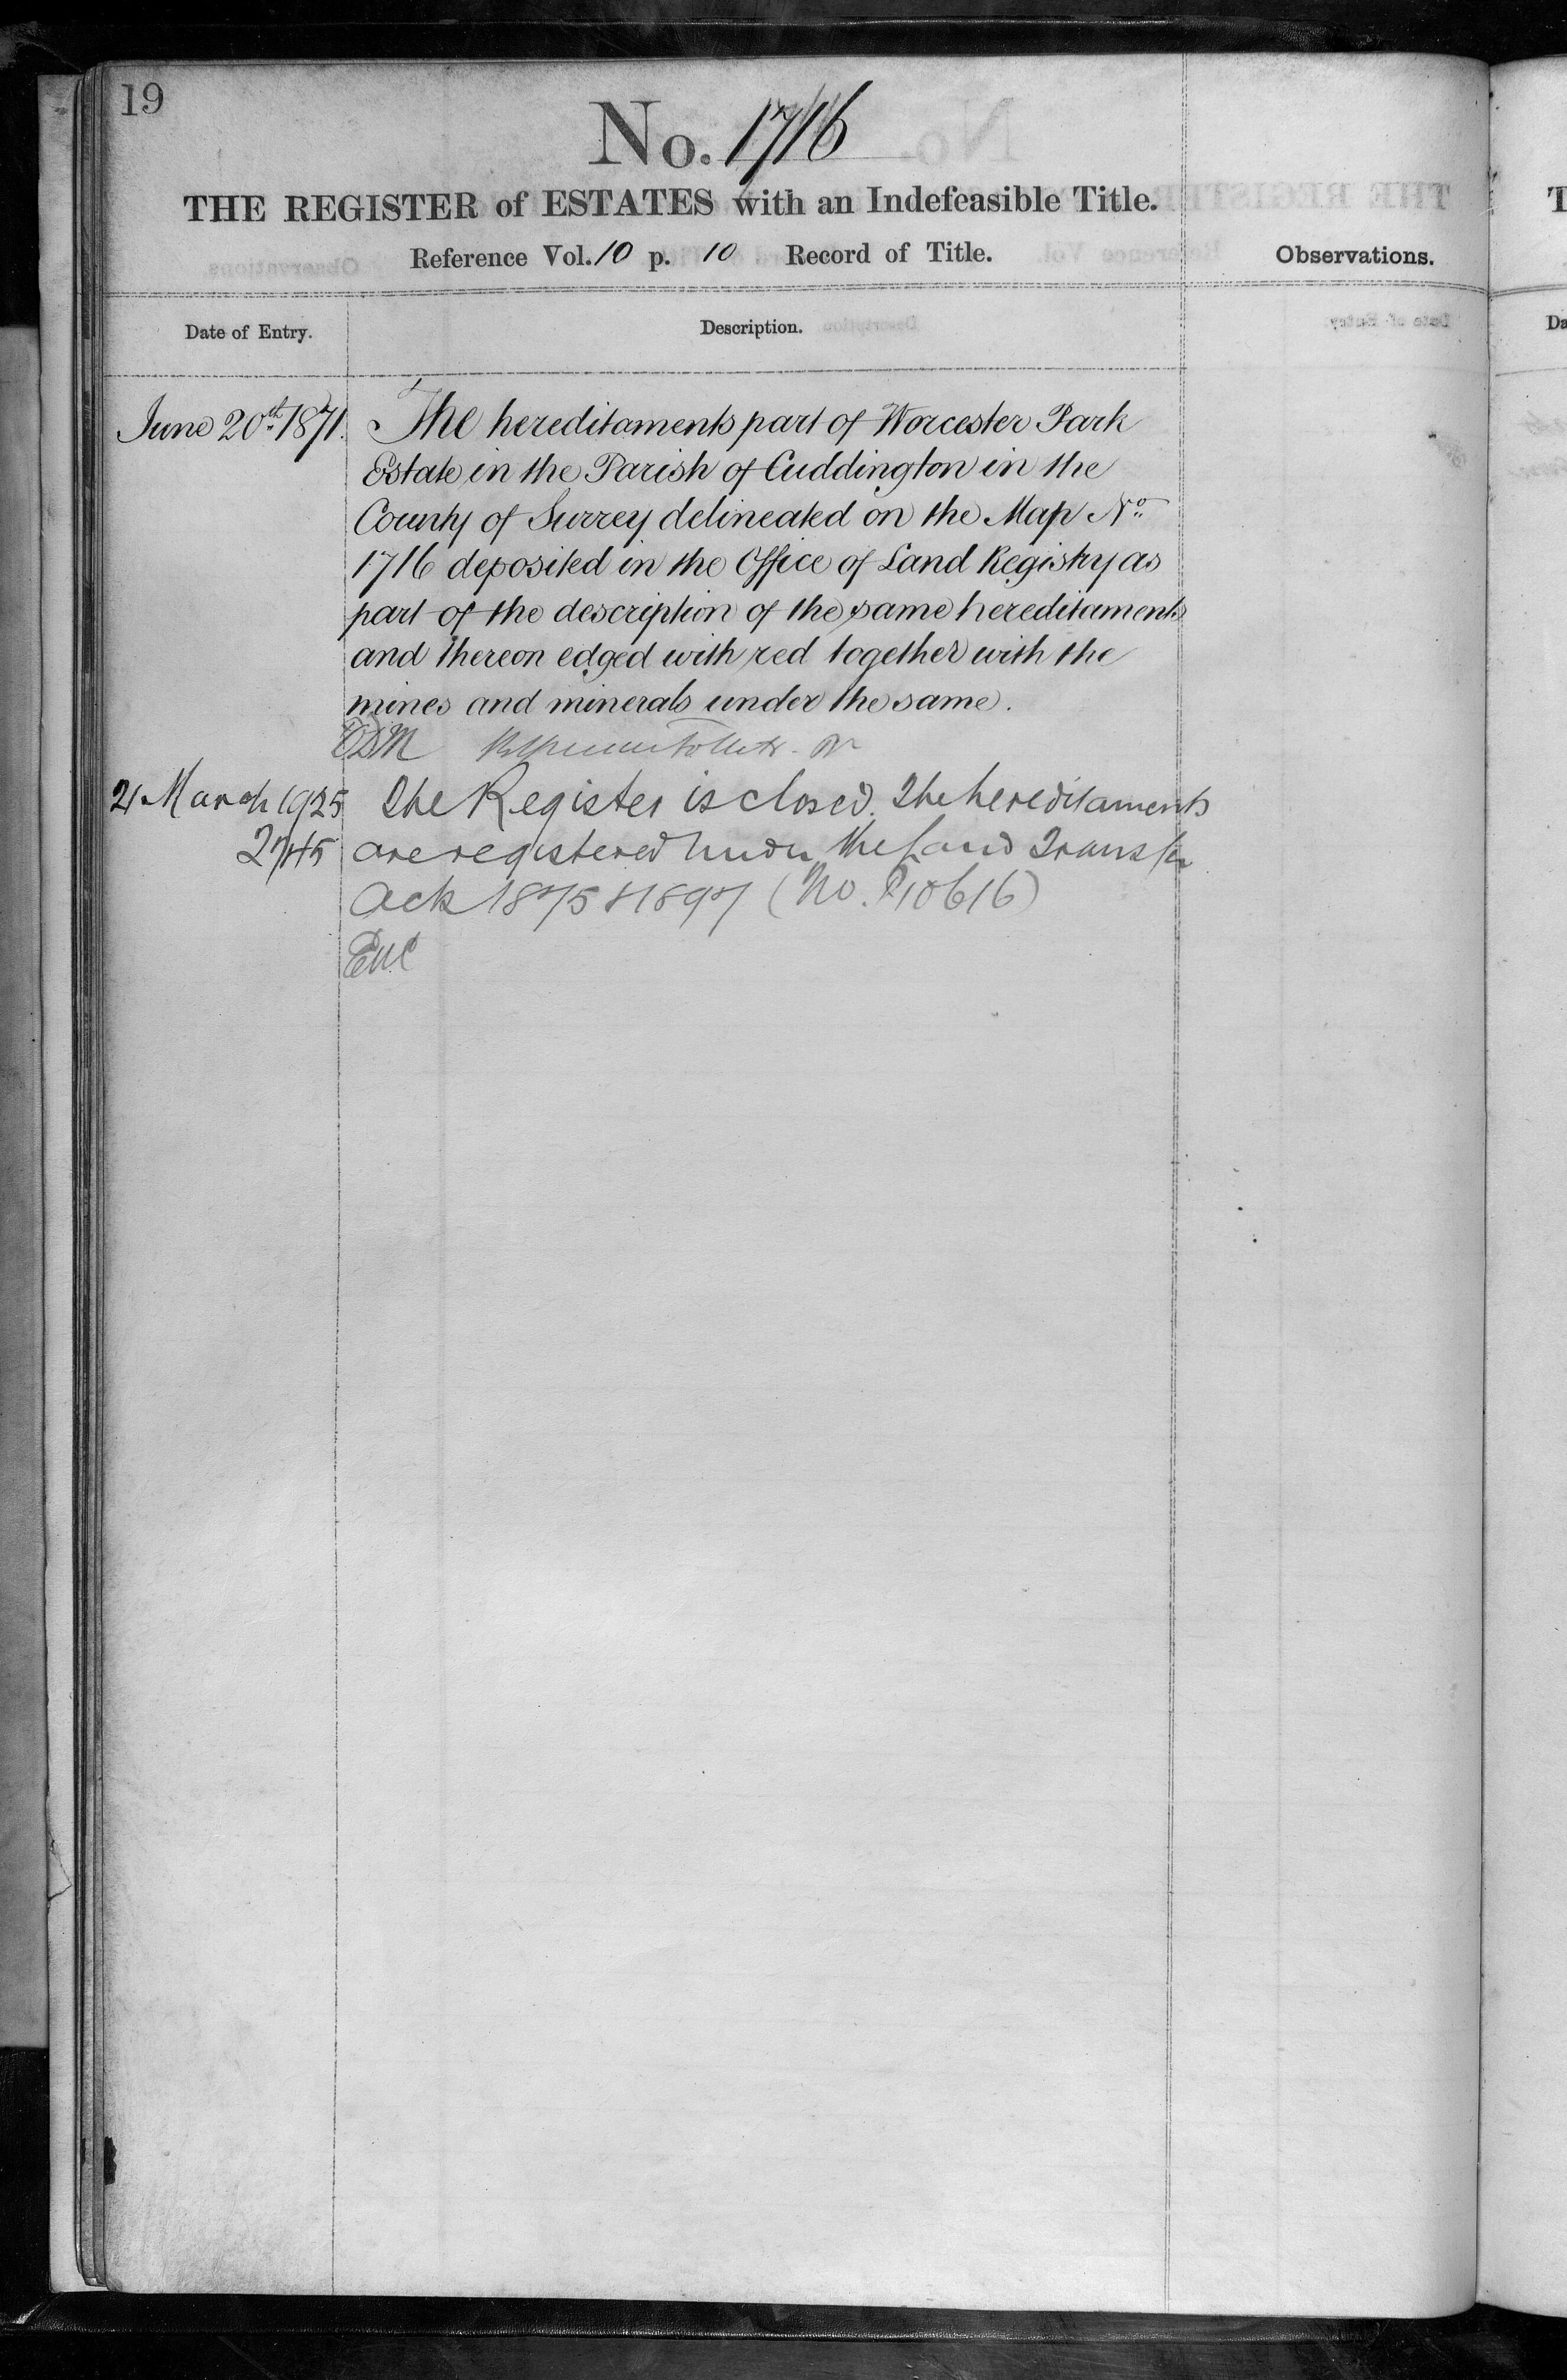 19
No. 1716
THE REGISTER of ESTATES with an Indefeasible Title.
Reference Vol. 10 p. 10 Record of Title.
Observations.
Date of Entry.
Description.
June 20th 1871. The hereditaments part of Worcester Park
Estate in the Parish of Cuddington in the
County of Surrey delineated on the Map No.
1716 deposited in the Office of Land Registry as
part of the description of the same hereditaments
and thereon edged with red together with the
mines and minerals under the same.
21 March 1925 The Register is closed. The hereditaments
2745 are registered under the Land Transfer
Acts 1875 & 1897 (No. P10616)